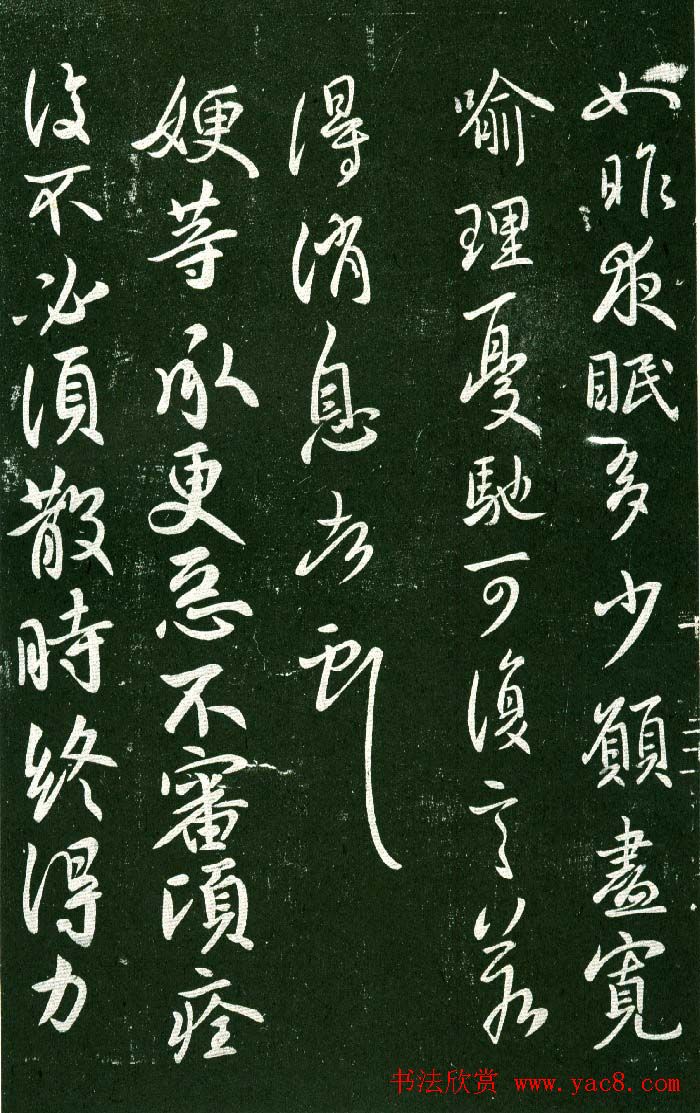 如昨夜眠多少願盡寬
喻理憂馳可復言若
得消息
嫂等承更惡不審頃痊
復不必須散時終得力
书法欣赏 www.yac8.com